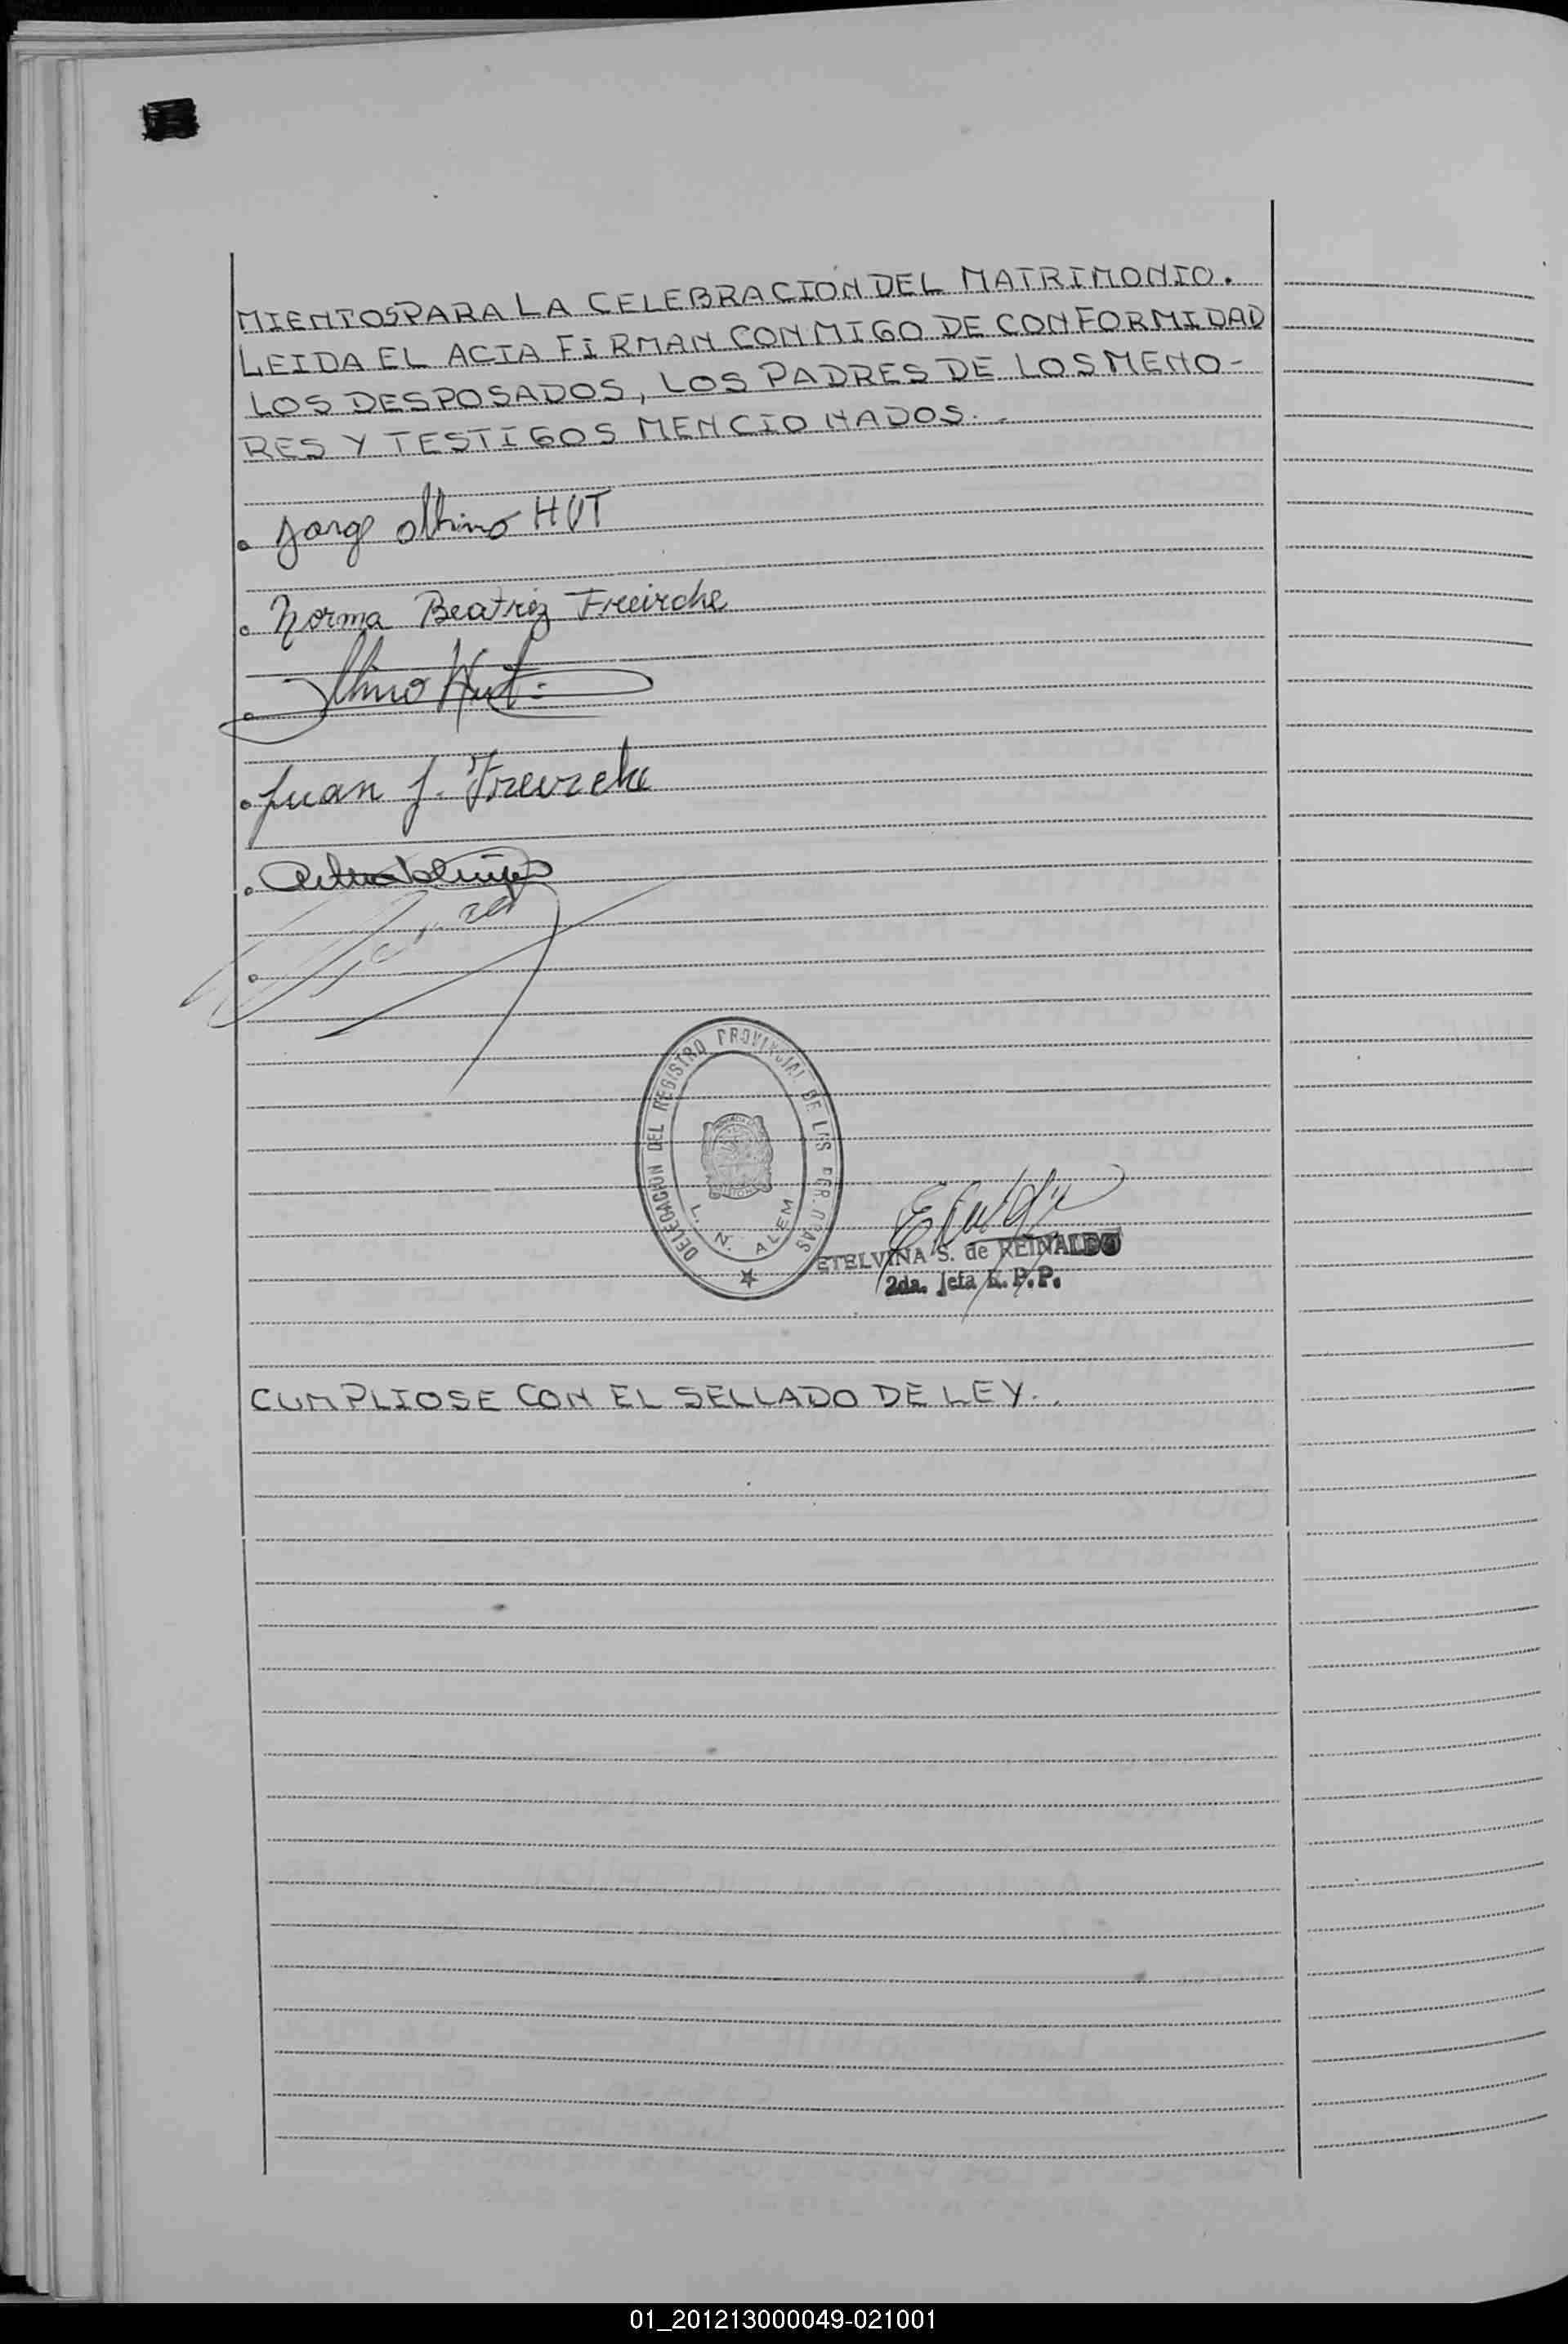 MIENTOS PARA LA CELEBRACION DEL MATRIMONIO.
LEIDA EL ACTA FIRMAN CONMIGO DE CONFORMIDAD
LOS DESPOSADOS, LOS PADRES DE LOS MENO-
RES Y TESTIGOS MENCIONADOS.
Jorge Albino HUT
Norma Beatriz Freirche
Albino Hut
Juan J. Freirche
DELEGACION DEL REGISTRO PROVINCIAL DE LAS PERSONAS
L. N. ALEM
ETELVINA S. de REINALDO
2da. Jefa R. P. P.
CUMPLIOSE CON EL SELLADO DE LEY.
01_201213000049-021001